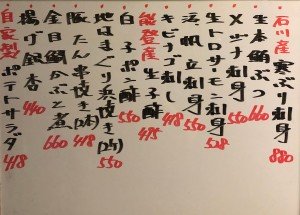 石川産 寒ぶり刺身 880
生本鮪ぶつ 660
メジナ刺身 550
生トロサーモン刺身 528
活帆立刺身 550
キビナゴ刺し 418
能登産 生子酢 495
白子ポン酢 550
地はまぐり浜焼き(2ヶ) 550
豚たん串焼き(2本) 418
金目鯛かぶと煮 660
揚げ銀杏 440
自家製 ポテトサラダ 418